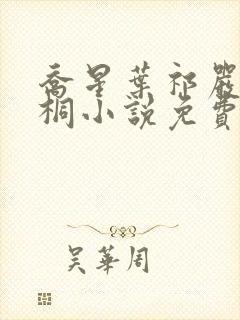 喬星葉祁嚴
桐小說免費
吴華周